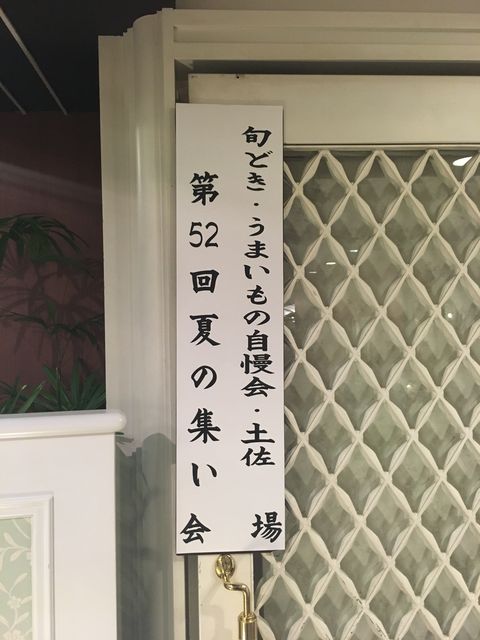 旬どき・うまいもの自慢会・土佐
第52回夏の集い
会場